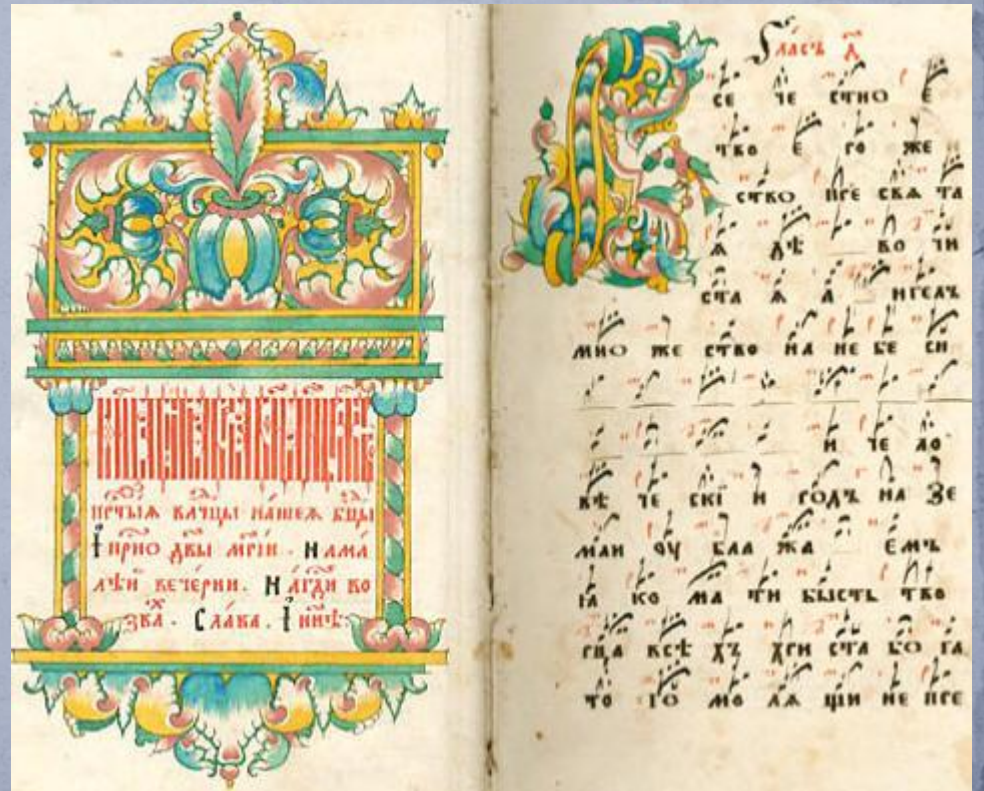 прⷭ҇тыѧ влⷣчцы на́шеѧ бцⷣы
І при́но дв҃ы мр҃і́и . На ма́
лѣй вече́рни . На гдⷭ҇и во
зва́хъ . Сла́ва . І ны́нѣ:
Гла́съ д҃
В се че стно е
тво е ро же
ство пре свѧ та
ѧ дѣ во чи
ста ѧ а нгелъ
мно же ство на не бе си
и че ло
вѣ че скі и родъ на зе
мли оу бла жа емъ
ꙗ ко ма ти бысть тво
рца всѣ хъ хри ста бо га
то го мо лѧ щи не пре